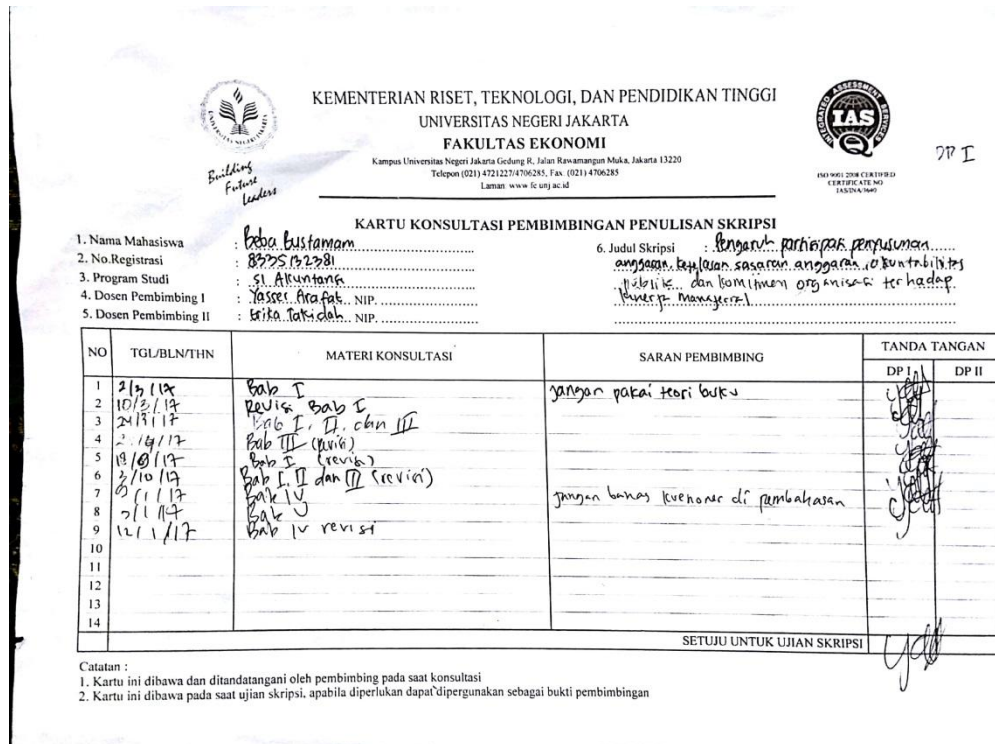 KEMENTERIAN RISET, TEKNOLOGI, DAN PENDIDIKAN TINGGI
UNIVERSITAS NEGERI JAKARTA
FAKULTAS EKONOMI
Kampus Universitas Negeri Jakarta Gedung R, Jalan Rawamangun Muka, Jakarta 13220
Telepon (021) 4721227/4706285, Fax. (021) 4706285
Laman www fe unj ac.id
Building
Future
Leaders
INTEGRATED ASSESSMENT SERVICES
IAS
ISO 9001 2008 CERTIFIED
CERTIFICATE NO
DP I
KARTU KONSULTASI PEMBIMBINGAN PENULISAN SKRIPSI
1. Nama Mahasiswa : Beba Bustamam
2. No.Registrasi : 8335132381
3. Program Studi : S1 Akuntansi
4. Dosen Pembimbing I : Yasser Arafat NIP.
5. Dosen Pembimbing II : Erika Takidah NIP.
6. Judul Skripsi : Pengaruh partisipasi penyusunan
anggaran, kejelasan sasaran anggaran, akuntabilitas
publik dan komitmen organisasi terhadap
kinerja manajerial
NO TGL/BLN/THN MATERI KONSULTASI SARAN PEMBIMBING TANDA TANGAN
DP I DP II
1 2/3/17 Bab I jangan pakai teori buku
2 10/3/17 Revisi Bab I
3 Bab I, II, dan III
4 Bab III (revisi)
5 Bab I (revisi)
6 3/10/17 Bab I, II dan III (revisi)
7 Bab IV jangan bahas kuesioner di pembahasan
8 Bab V
9 12/1/17 Bab IV revisi
10
11
12
13
14
SETUJU UNTUK UJIAN SKRIPSI
Catatan :
1. Kartu ini dibawa dan ditandatangani oleh pembimbing pada saat konsultasi
2. Kartu ini dibawa pada saat ujian skripsi, apabila diperlukan dapat dipergunakan sebagai bukti pembimbingan